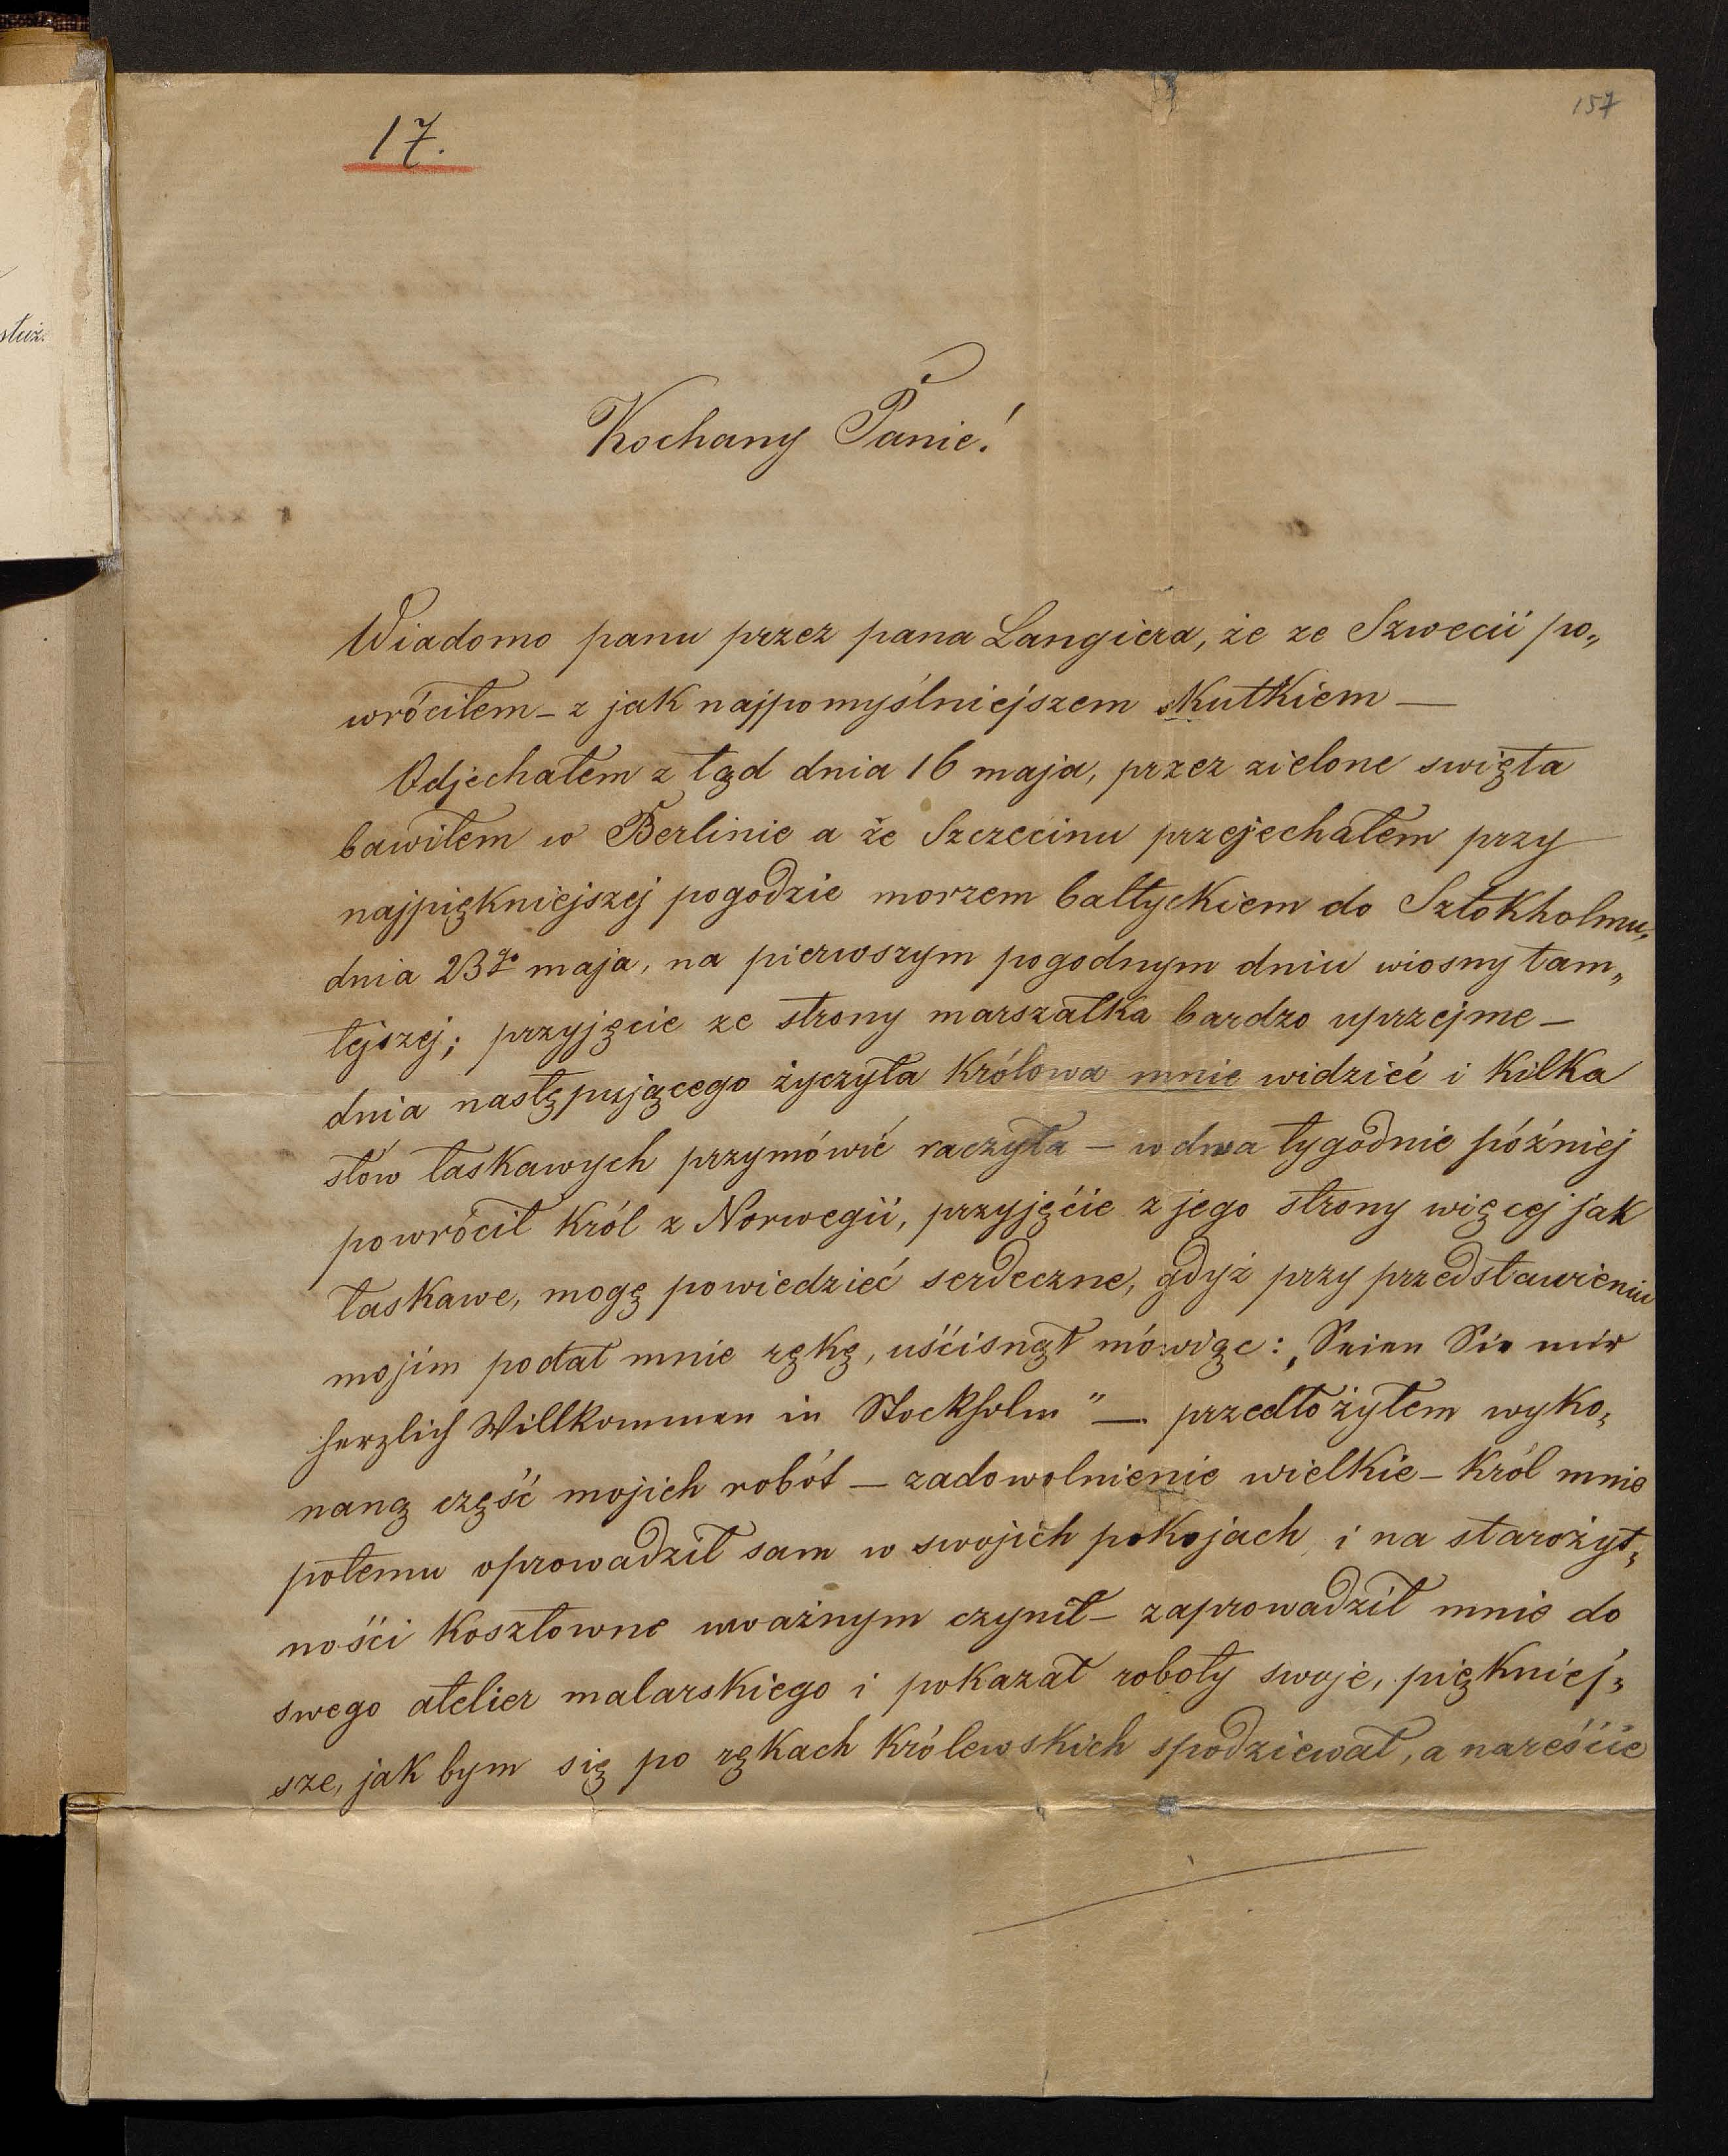 157
17.
stuż.
Kochany Panie!
Wiadomo panu przez pana Langiera, że ze Szwecii po„
wróciłem – z jak najpomyślniejszem skutkiem —
Odjechałem z tąd dnia 16 maja, przez zielone swięta
bawiłem w Berlinie a że Szczecinu przejechałem przy
najpiękniejszej pogodzie morzem bałtyckiem do Sztokholmu,
dnia 23go maja, na pierwszym pogodnym dniu wiosny tam„
tejszej; przyjęcie ze strony marszałka bardzo uprzejme –
dnia następującego życzyła Królowa mnie widzieć i Kilka
słow łaskawych przymówić raczyła – w dwa tygodnie później
powrócił Król z Norwegii, przyjęćie z jego strony więcej jak
łaskawe, mogę powiedzieć serdeczne, gdyż przy przedstawieniu
mojim podał mnie rękę, uśćisnął mówiąc: „Seien Sie mir
herzlich Willkommen in Stockholm" — przedłożyłem wyko„
naną część mojich robót — zadowolnienie wielkie – Król mnie
potemu oprowadził sam w swojich pokojach, i na starożyt„
nośći Kosztowne uważnym czynił – zaprowadził mnie do
swego atelier malarskiego i pokazał roboty swoje, piękniej„
sze, jak bym się po rękach Królewskich spodziewał, a nareśćie